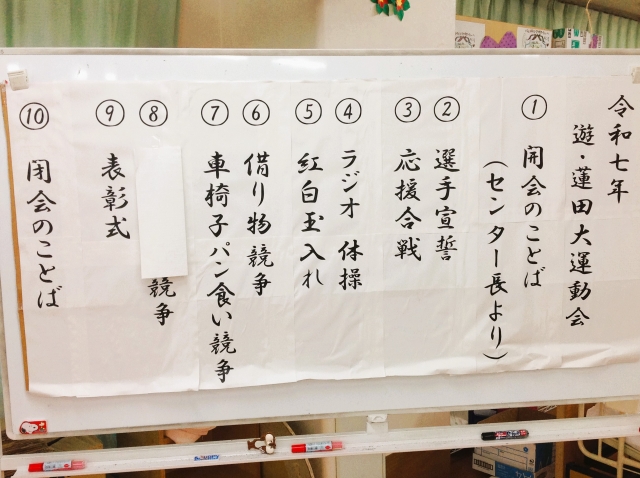 令和七年
遊・蓮田大運動会
① 開会のことば
(センター長より)
② 選手宣誓
③ 応援合戦
④ ラジオ体操
⑤ 紅白玉入れ
⑥ 借り物競争
⑦ 車椅子パン食い競争
⑧ 競争
⑨ 表彰式
⑩ 閉会のことば